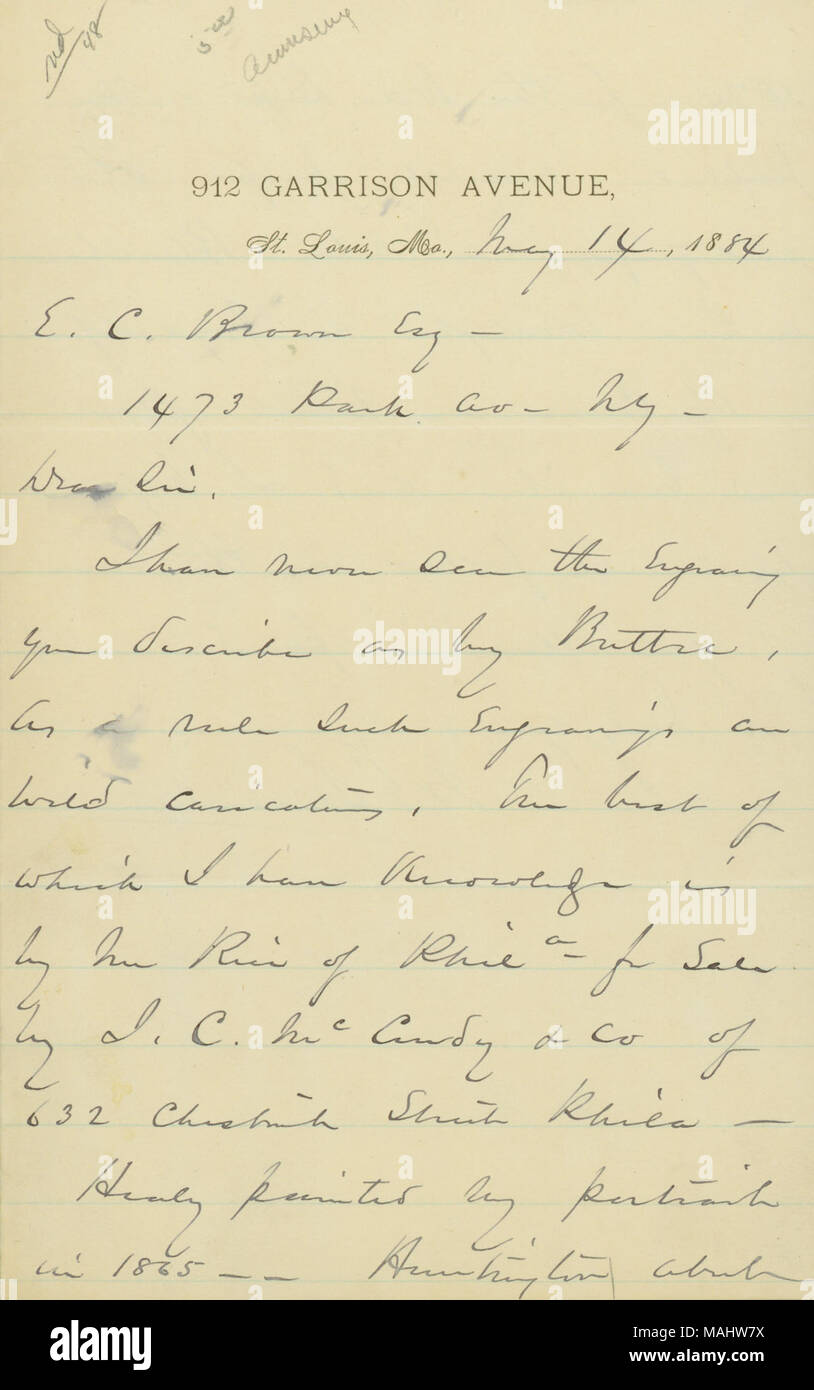 nd
48
5 00
Amusing
912 GARRISON AVENUE,
St. Louis, Mo., May 14, 1884
E. C. Brown Esq —
1473 Park Av — NY —
Dear Sir.
I have never seen the Engraving
you describe as by Buttre,
As a rule such Engravings are
wild caricatures. The best of
which I have Knowledge is
by Mr Rice of Phila — for Sale
by I. C. McCurdy & Co of
632 Chestnut Street Phila —
Healy painted my portrait
in 1865 — — Huntington about
alamy
alamy stock photo
Image ID: MAHW7X
www.alamy.com